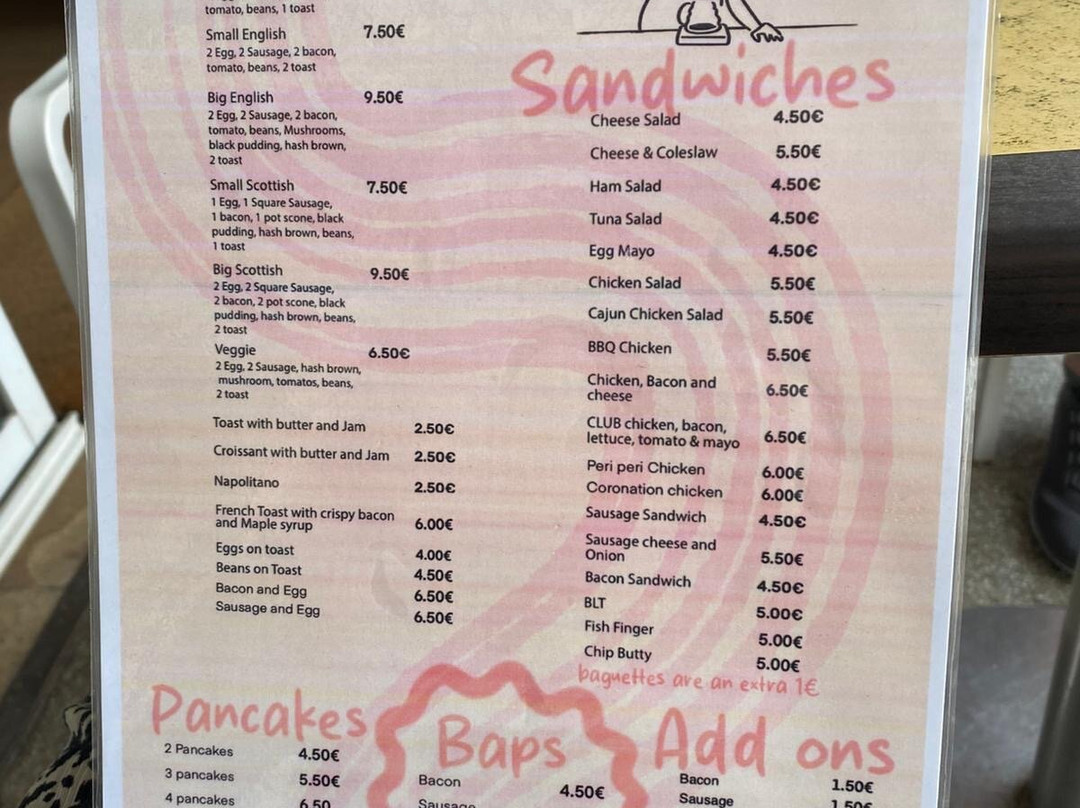 tomato, beans, 1 toast
Small English 7.50€
2 Egg, 2 Sausage, 2 bacon,
tomato, beans, 2 toast
Big English 9.50€
2 Egg, 2 Sausage, 2 bacon,
tomato, beans, Mushrooms,
black pudding, hash brown,
2 toast
Small Scottish 7.50€
1 Egg, 1 Square Sausage,
1 bacon, 1 pot scone, black
pudding, hash brown, beans,
1 toast
Big Scottish 9.50€
2 Egg, 2 Square Sausage,
2 bacon, 2 pot scone, black
pudding, hash brown, beans,
2 toast
Veggie 6.50€
2 Egg, 2 Sausage, hash brown,
mushroom, tomatos, beans,
2 toast
Toast with butter and Jam 2.50€
Croissant with butter and Jam 2.50€
Napolitano 2.50€
French Toast with crispy bacon
and Maple syrup 6.00€
Eggs on toast 4.00€
Beans on Toast 4.50€
Bacon and Egg 6.50€
Sausage and Egg 6.50€
Sandwiches
Cheese Salad 4.50€
Cheese & Coleslaw 5.50€
Ham Salad 4.50€
Tuna Salad 4.50€
Egg Mayo 4.50€
Chicken Salad 5.50€
Cajun Chicken Salad 5.50€
BBQ Chicken 5.50€
Chicken, Bacon and
cheese 6.50€
CLUB chicken, bacon,
lettuce, tomato & mayo 6.50€
Peri peri Chicken 6.00€
Coronation chicken 6.00€
Sausage Sandwich 4.50€
Sausage cheese and
Onion 5.50€
Bacon Sandwich 4.50€
BLT 5.00€
Fish Finger 5.00€
Chip Butty 5.00€
baguettes are an extra 1€
Pancakes
2 Pancakes 4.50€
3 pancakes 5.50€
4 pancakes 6.50
Baps
Bacon 4.50€
Sausage
Add ons
Bacon 1.50€
Sausage 1.50€